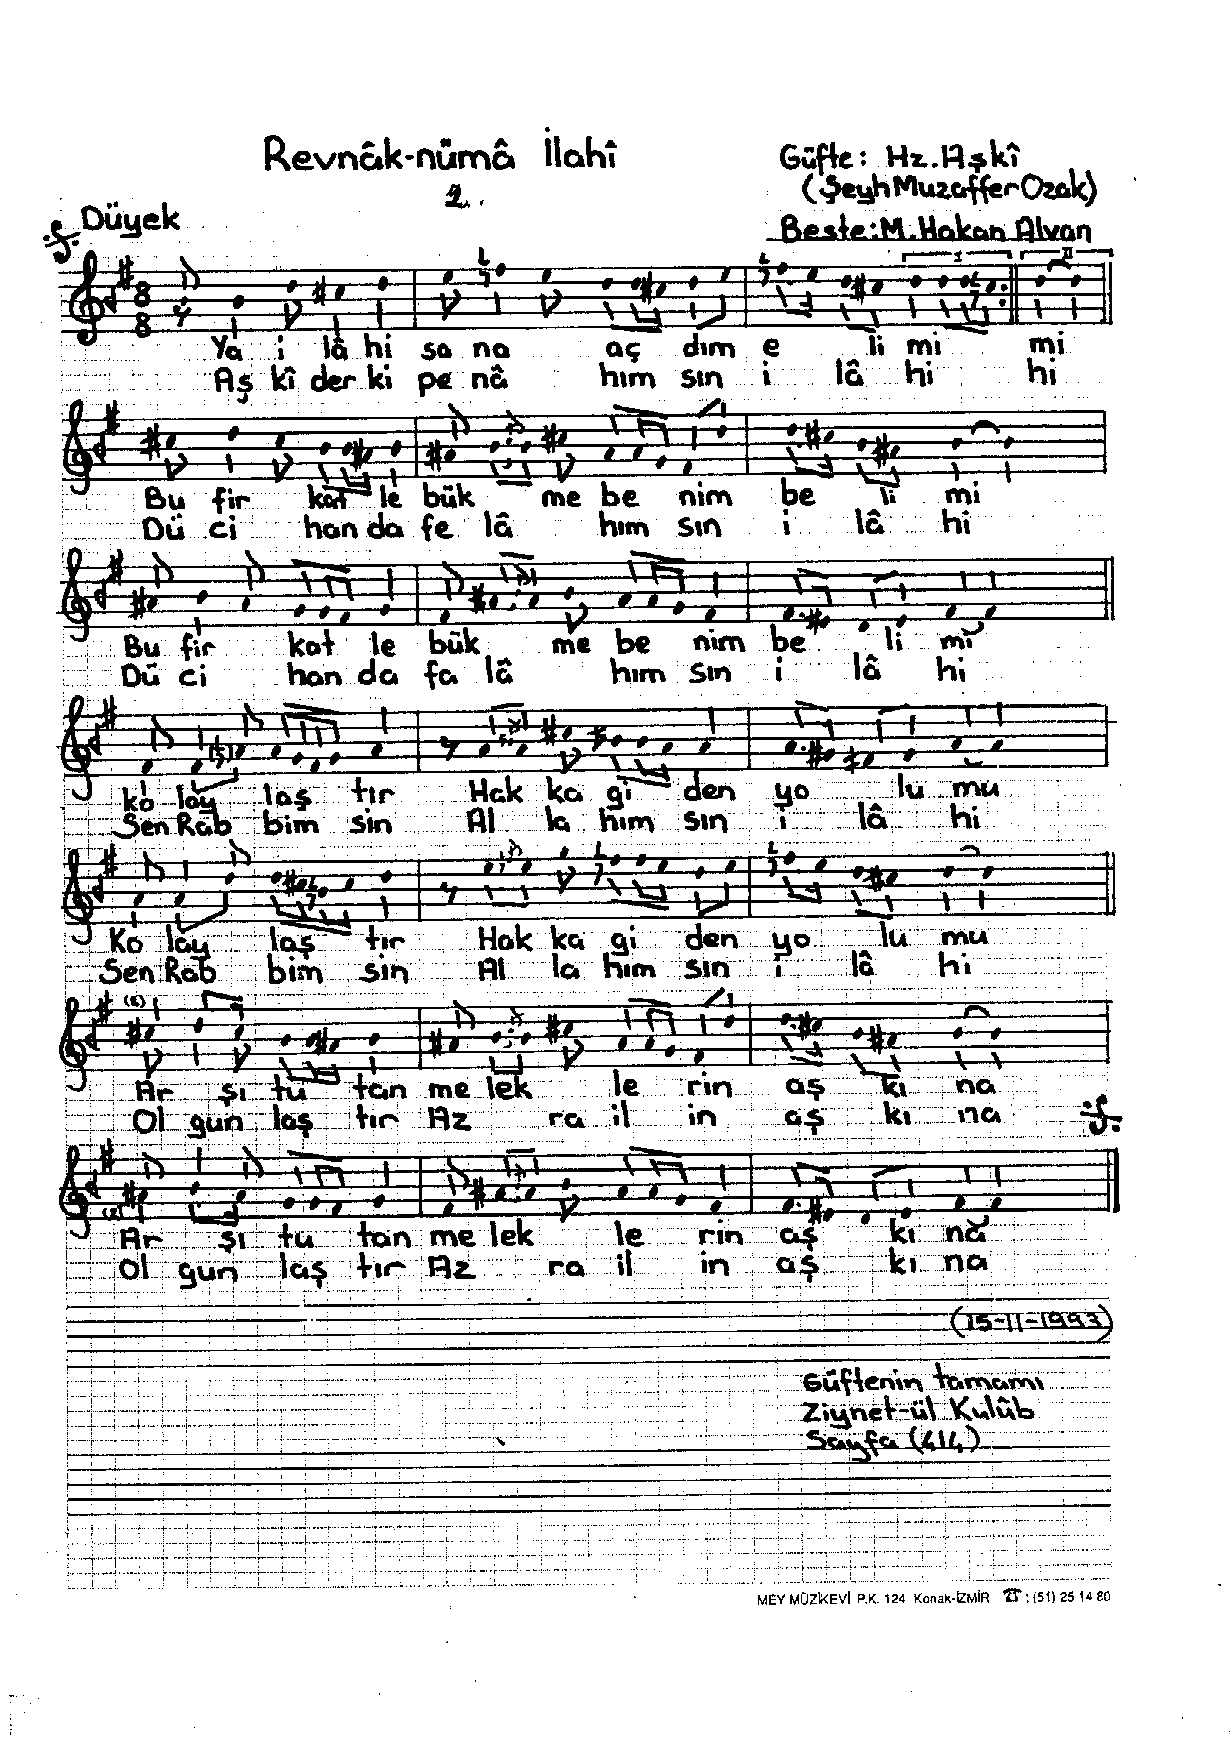 Revnâk-nümâ İlahî
2..
Güfte: Hz. Aşkî
(Şeyh Muzaffer Ozak)
Düyek
Beste: M. Hakan Alvan
8
8
I II
Ya i lâ hi sa na aç dım e li mi mi
Aş kî der ki pe nâ hım sın i lâ hi hi
Bu fir kat le bük me be nim be li mi
Dü ci han da fe lâ hım sın i lâ hi
Bu fir kat le bük me be nim be li mi
Dü ci han da fa lâ hım sın i lâ hi
ko lay laş tır Hak ka gi den yo lu mu
Sen Rab bim sin Al la hım sın i lâ hi
Ko lay laş tır Hak ka gi den yo lu mu
Sen Rab bim sin Al la hım sın i lâ hi
Ar şı tu tan me lek le rin aş kı na
Ol gun laş tır Az ra il in aş kı na
Ar şı tu tan me lek le rin aş kı na
Ol gun laş tır Az ra il in aş kı na
(15-11-1993)
Güftenin tamamı
Ziynet-ül Kulûb
Sayfa (414)
MEY MÜZİKEVİ P.K. 124 Konak-İZMİR ☎ : (51) 25 14 80